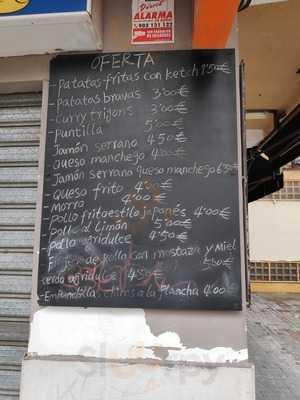 ALARMA
902 131 132
OFERTA
- Patatas fritas con ketch 1'50€
- Patatas bravas 3'00€
- Curry frigons 3'00€
- Puntilla 5'00€
- Jamón serrano 4'50€
- Queso manchejo 4'00€
- Jamón serrano queso manchejo 6
- Queso frito 4'00€
- Morro 4'00€
- Pollo frito estilo japonés 4'00€
- Pollo al Limón 5'00€
- pollo agridulce 4'50€
de pollo con mostaza y Miel 5'50€
cerdo agridulce 4'50€
- Empanadillas chinas a la plancha 4'00€